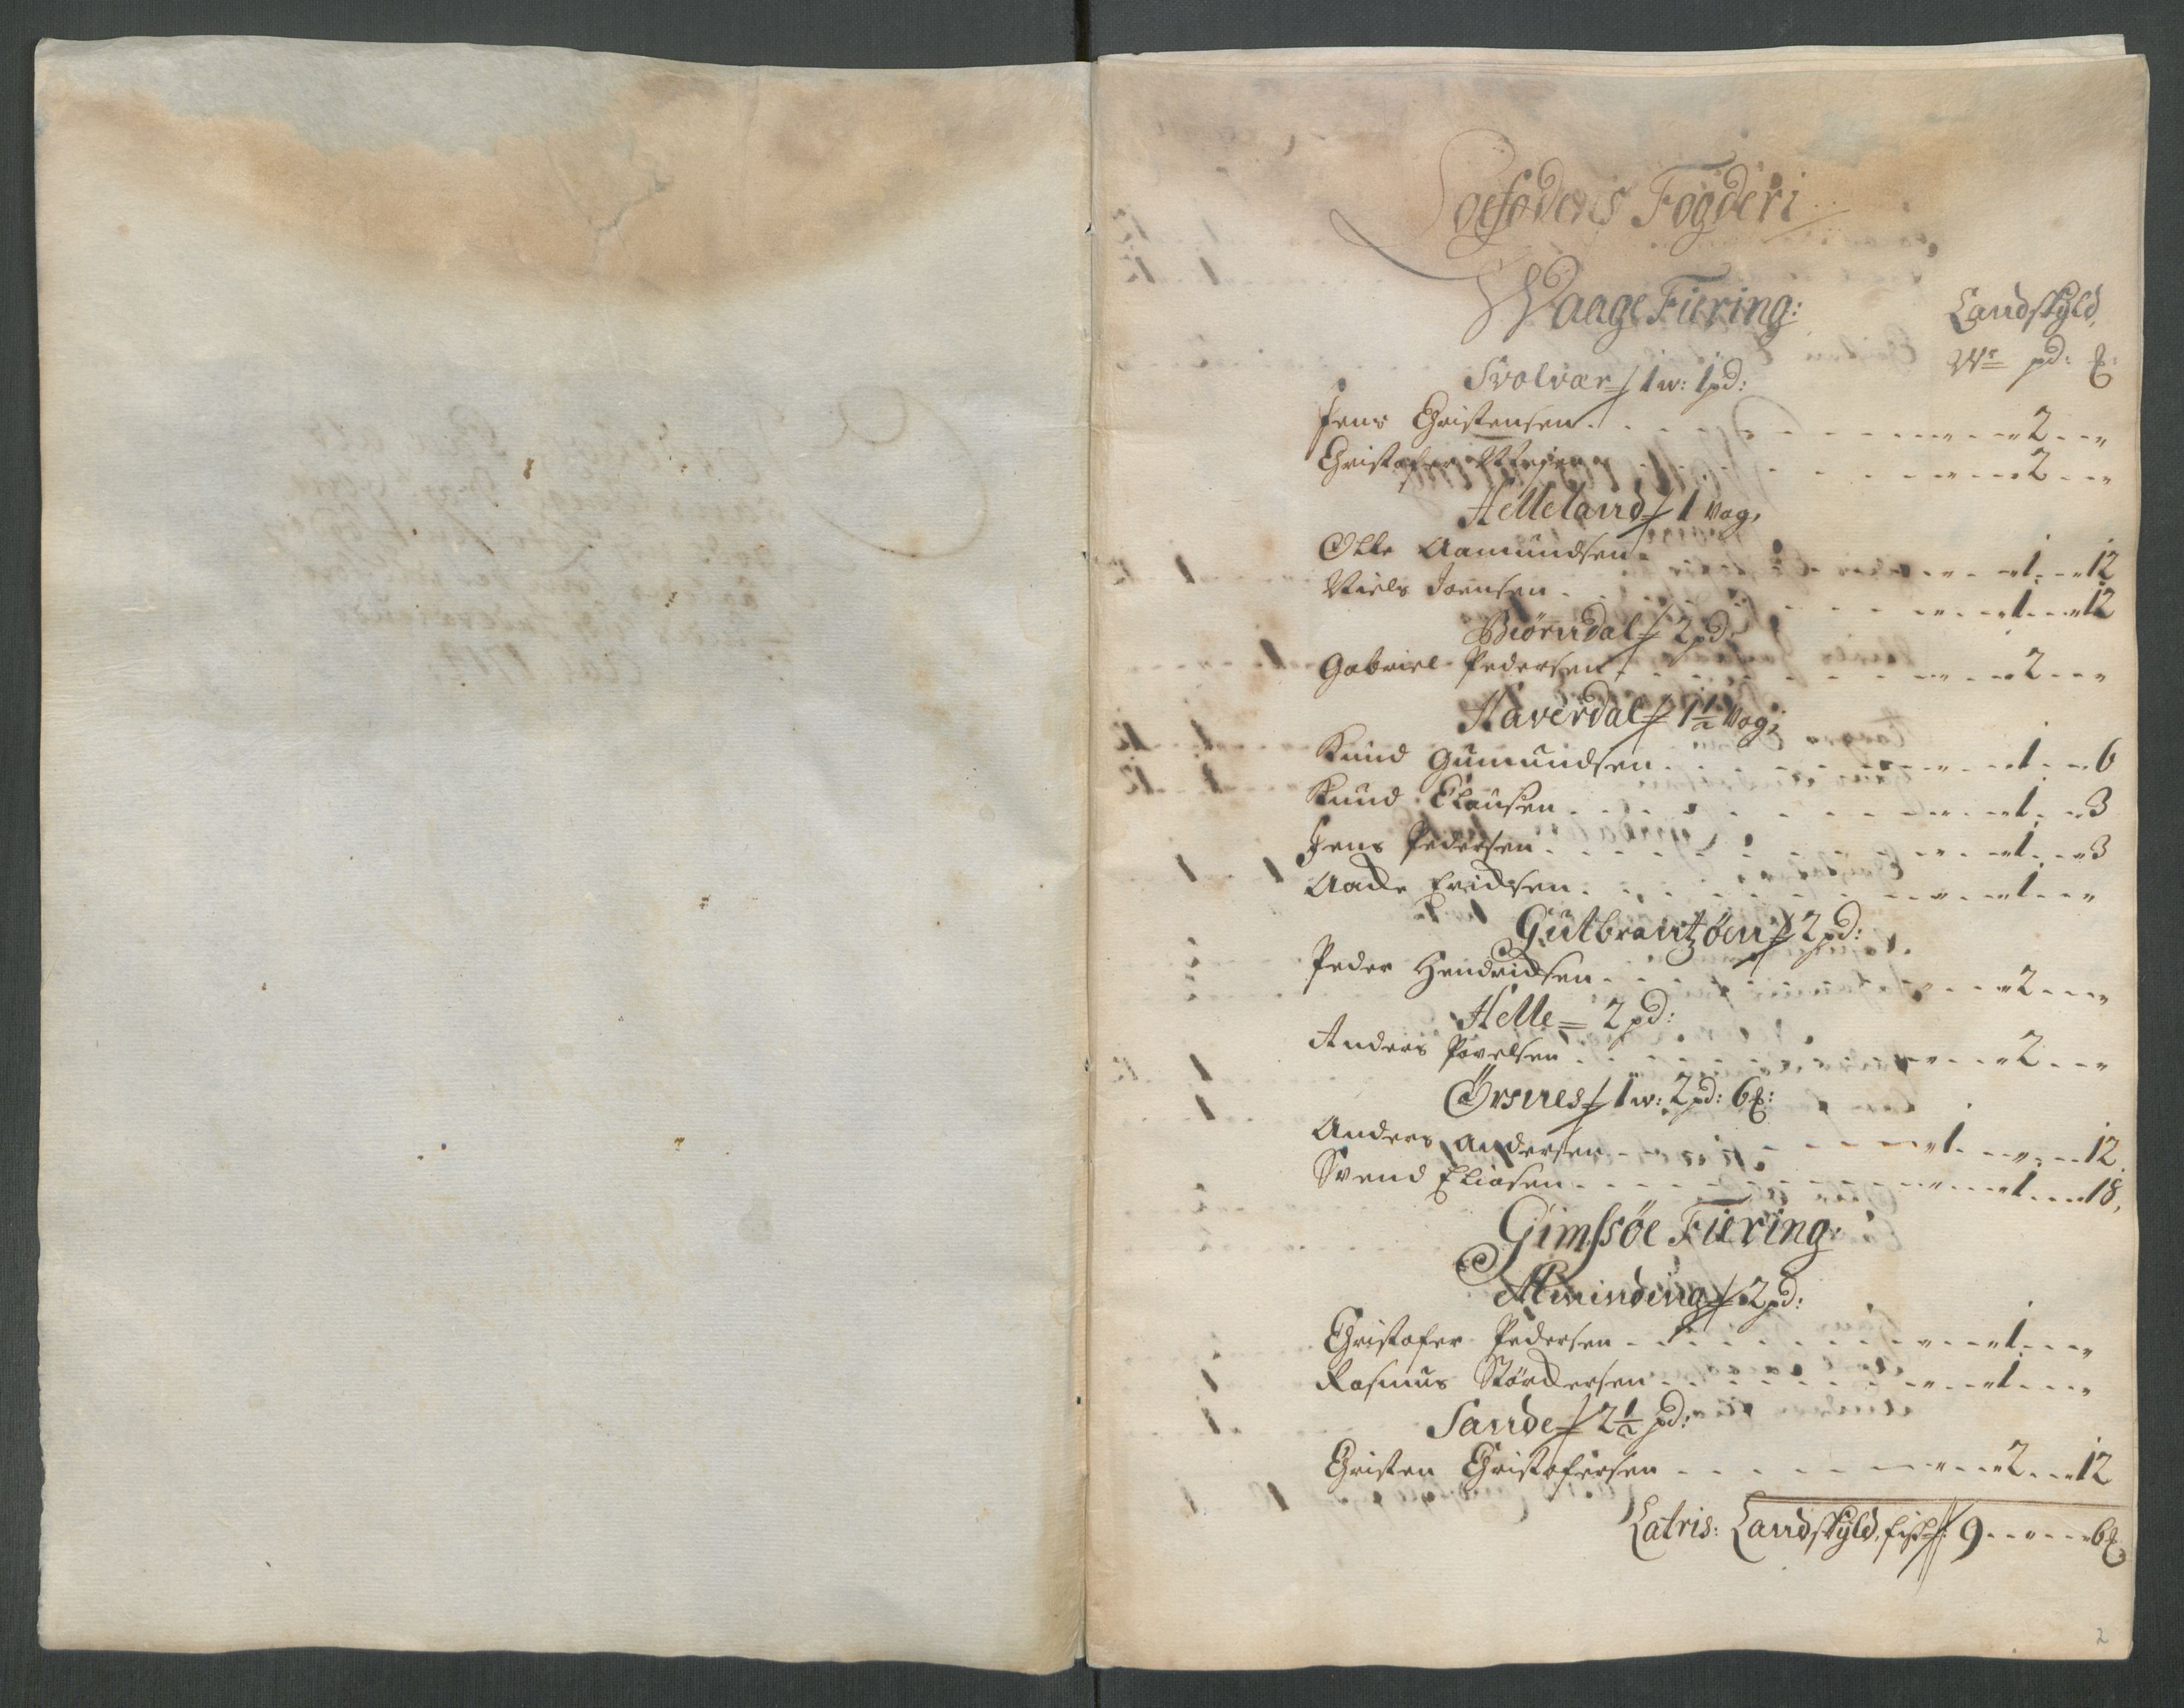 Loefodens Fogderi
Waage Fiering:
Landskyld
Wr pd: ℔:
Svolvær 1 w: 1 pd:
Jens Christensen - - " - - " 2 - - "
Christofer - - " - - " 2 - - "
Helleland 1 Vog,
Olle Aamundsen - - " - - " 1 - - " 12
Niels Joensen - - " - - " 1 - - " 12
Biørndal 2 pd:
Gabriel Pedersen - - " - - " 2 - - "
Haverdal 1 1/2 Vog;
Knud Gumundsen - - " - - " 1 - - " 6
Knud Clausen - - " - - " 1 - - " 3
Jens Pedersen - - " - - " 1 - - " 3
Aache Erichsen - - " - - " 1 - - "
Gulbrantzøen 2 pd:
Peder Hendrichsen - - " - - " 2 - - "
Helle = 2 pd:
Anders Povelsen - - " - - " 2 - - "
Ørsnes 1 w: 2 pd: 6 ℔:
Anders Andersen - - " 1 - - " - - 12
Svend Eliasen - - " - - " 1 - - 18,
Gimssøe Fiering:
Alminding 2 pd:
Christofer Pedersen - - " - - " 1 - - "
Rasmus Størchersen - - " - - " 1 - - "
Sande 2 1/2 pd:
Christen Christofersen - - " - - " 2 - - " 12
Latris: Landskyld, fisk 9 - - " - - " 6 ℔
2